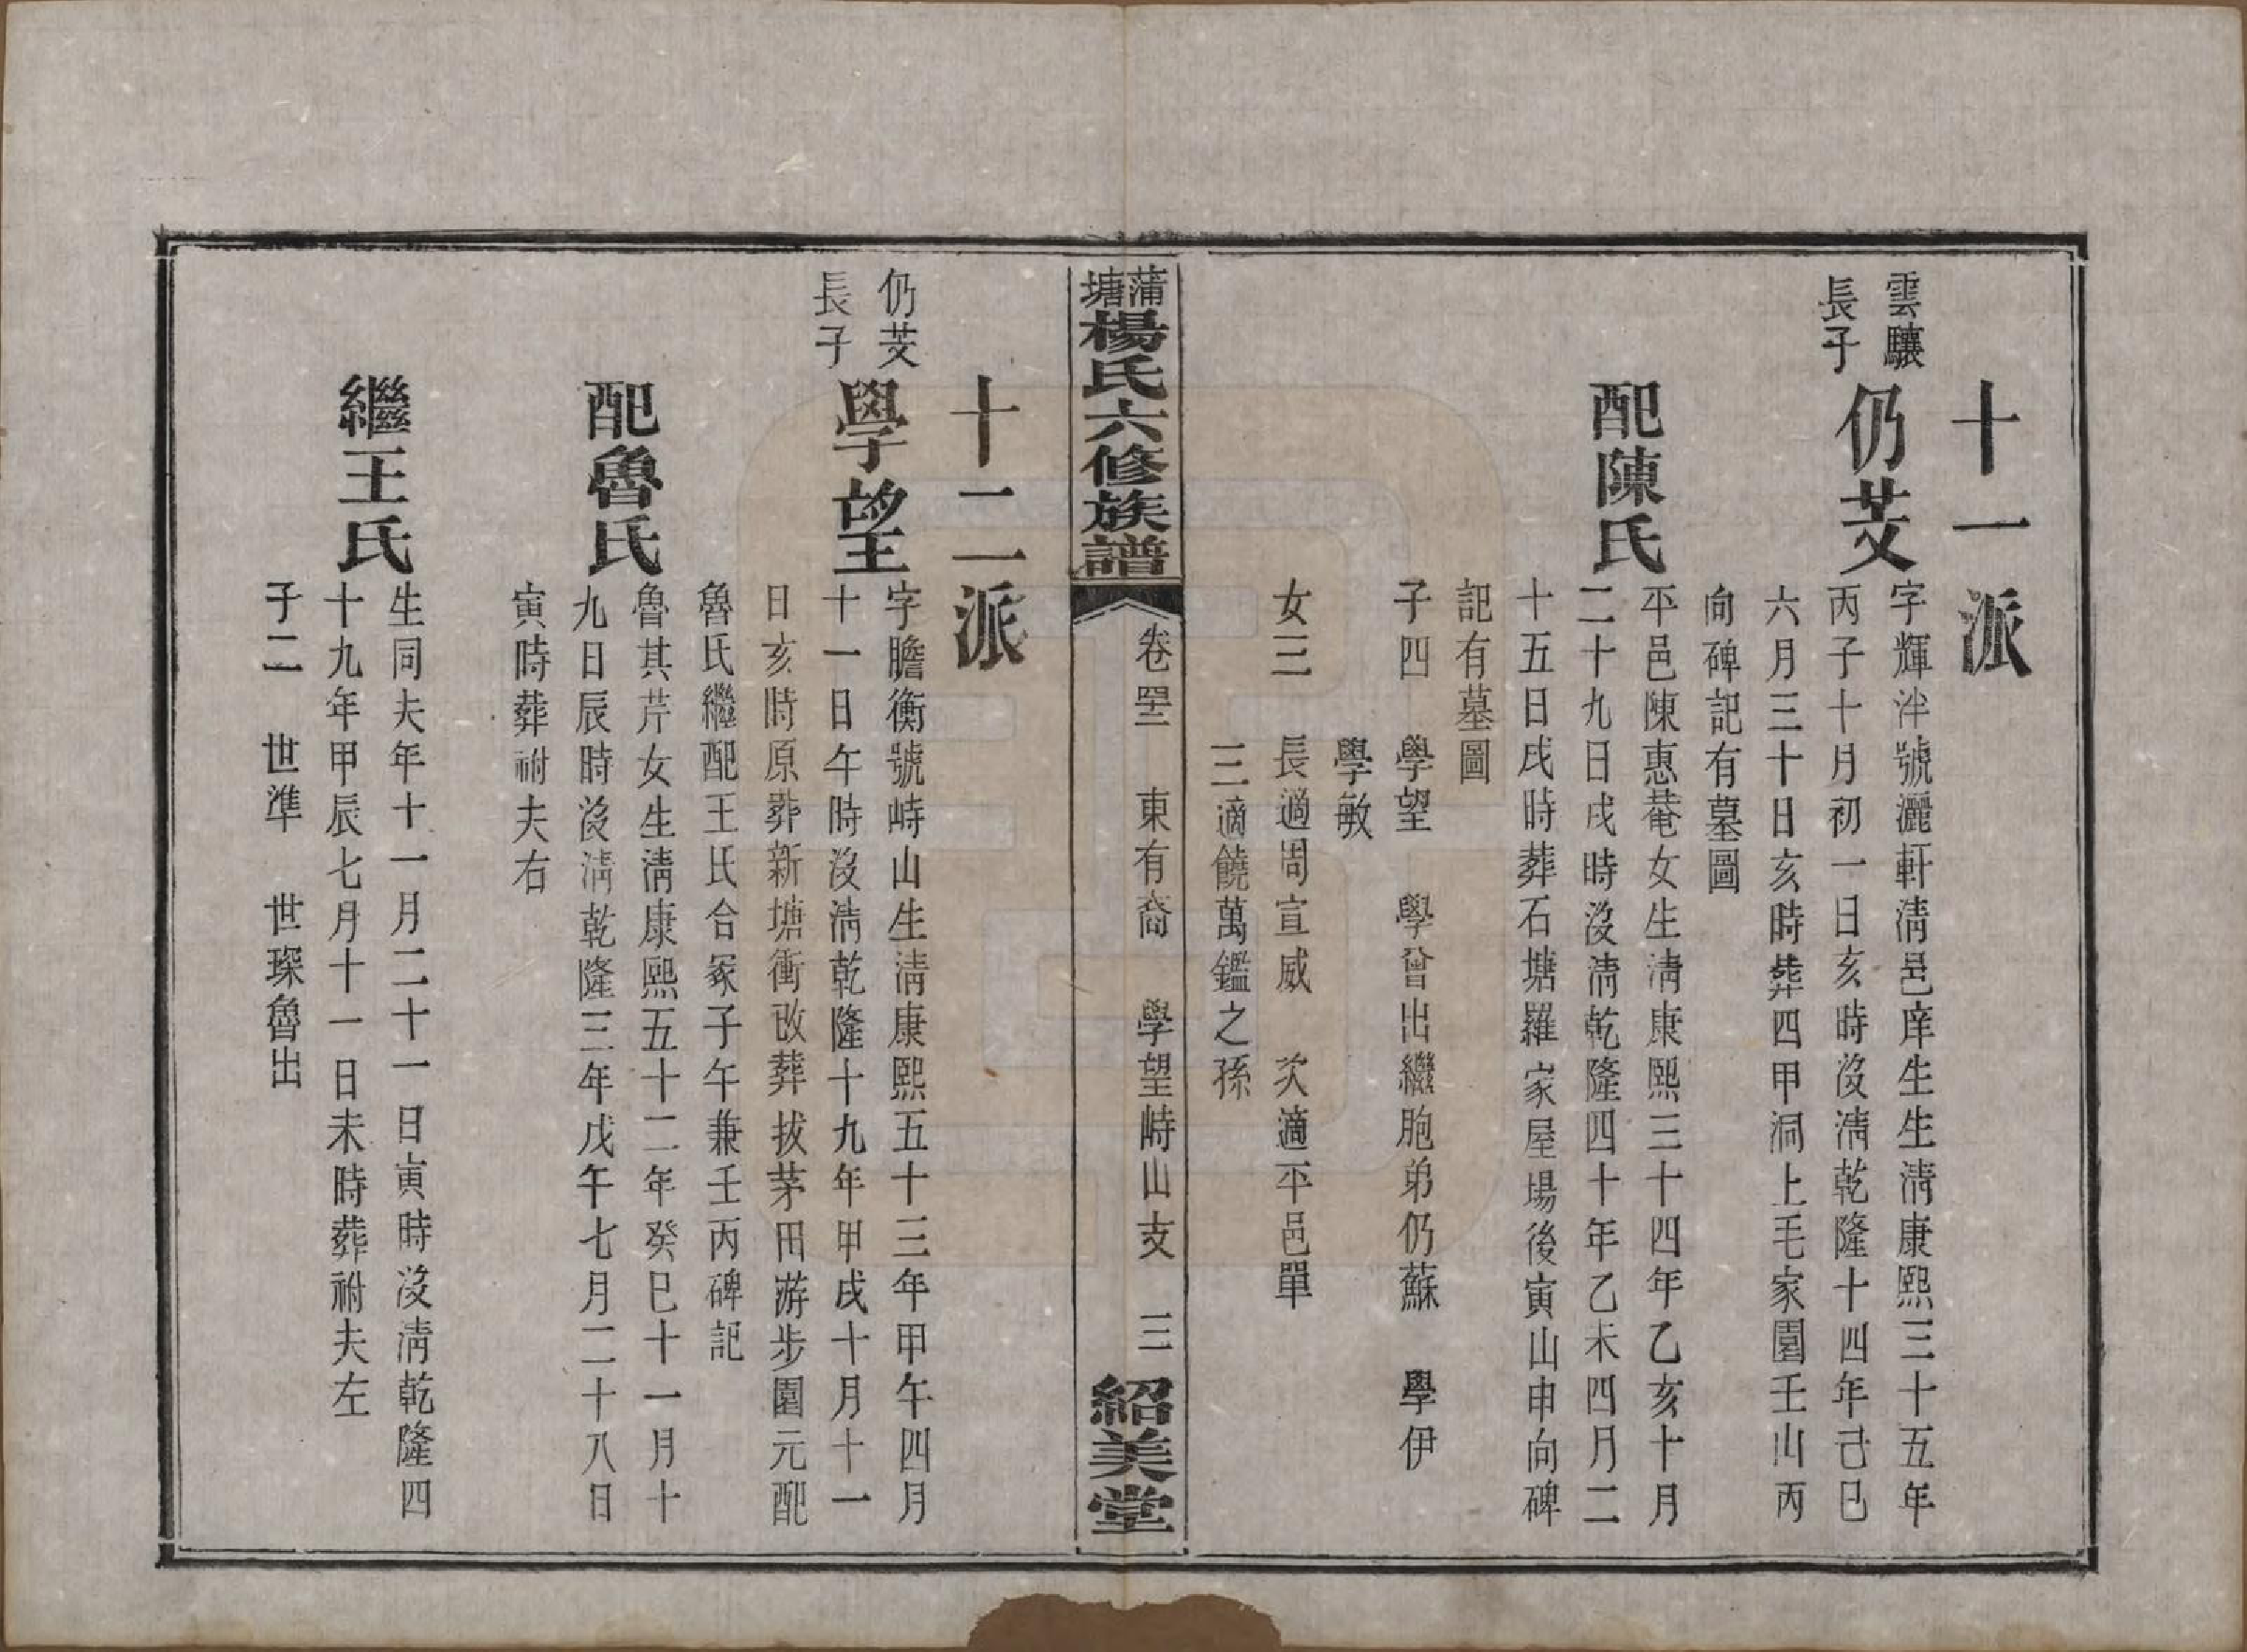 十一派
雲驤
長子
仍芨
字輝泮號灑軒淸邑庠生生淸康熙三十五年
丙子十月初一日亥時沒淸乾隆十四年己巳
六月三十日亥時葬四甲洞上毛家園壬山丙
向碑記有墓圖
配陳氏
平邑陳惠菴女生淸康熙三十四年乙亥十月
二十九日戌時沒淸乾隆四十年乙未四月二
十五日戌時葬石塘羅家屋場後寅山申向碑
記有墓圖
子四 學望 學曾出繼胞弟仍蘇 學伊
學敏
女三 長適周宣威 次適平邑單
三適饒萬鑑之孫
蒲塘楊氏六修族譜
卷 東有裔 學望峙山支 三
紹美堂
十二派
仍芨
長子
學望
字瞻衡號峙山生淸康熙五十三年甲午四月
十一日午時沒淸乾隆十九年甲戌十月十一
日亥時原葬新塘衝改葬拔茅田游步園元配
魯氏繼配王氏合冢子午兼壬丙碑記
配魯氏
魯其芹女生淸康熙五十二年癸巳十一月十
九日辰時沒淸乾隆三年戊午七月二十八日
寅時葬祔夫右
繼王氏
生同夫年十一月二十一日寅時沒淸乾隆四
十九年甲辰七月十一日未時葬祔夫左
子二 世準 世琛魯出